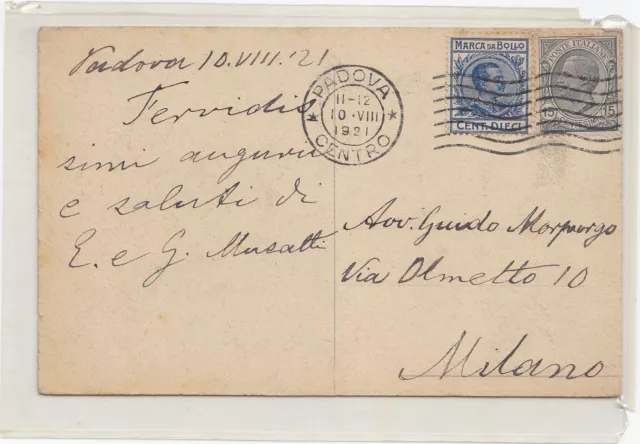 Padova 10.VIII.'21
Fervidis
simi auguri
e saluti di
E. e G. Musatti
PADOVA
11-12
10·VIII
1921
CENTRO
MARCA DA BOLLO
CENT. DIECI
POSTE ITALIANE
15 15
Avv. Guido Morpurgo
Via Olmetto 10
Milano